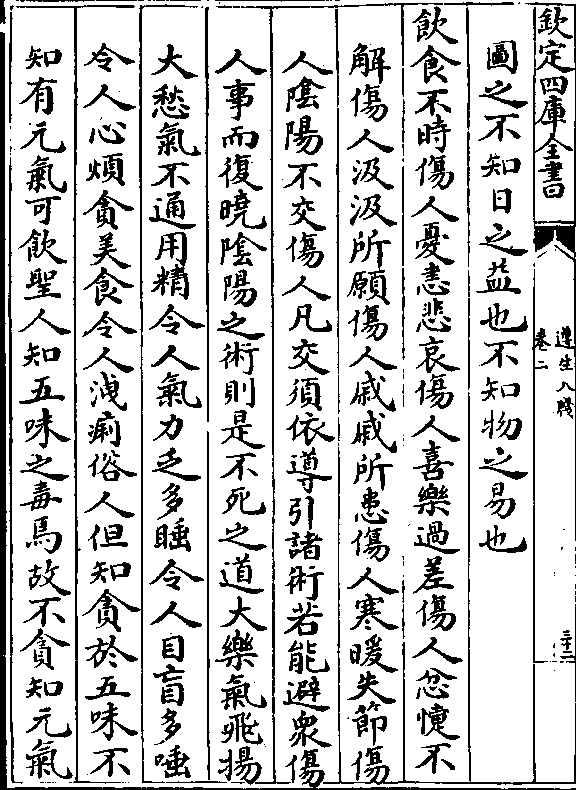 欽定四庫全書
遵生八牋
卷二
三十二
圖之不知日之益也不知物之易也
飲食不時傷人憂恚悲哀傷人喜樂過差傷人忿懥不
解傷人汲汲所願傷人戚戚所患傷人寒暖失節傷
人隂陽不交傷人凡交須依導引諸術若能避衆傷
人事而復曉隂陽之術則是不死之道大樂氣飛揚
大愁氣不通用精令人氣力乏多睡令人目盲多唾
令人心煩貪美食令人洩痢俗人但知貪於五味不
知有元氣可飲聖人知五味之毒焉故不貪知元氣